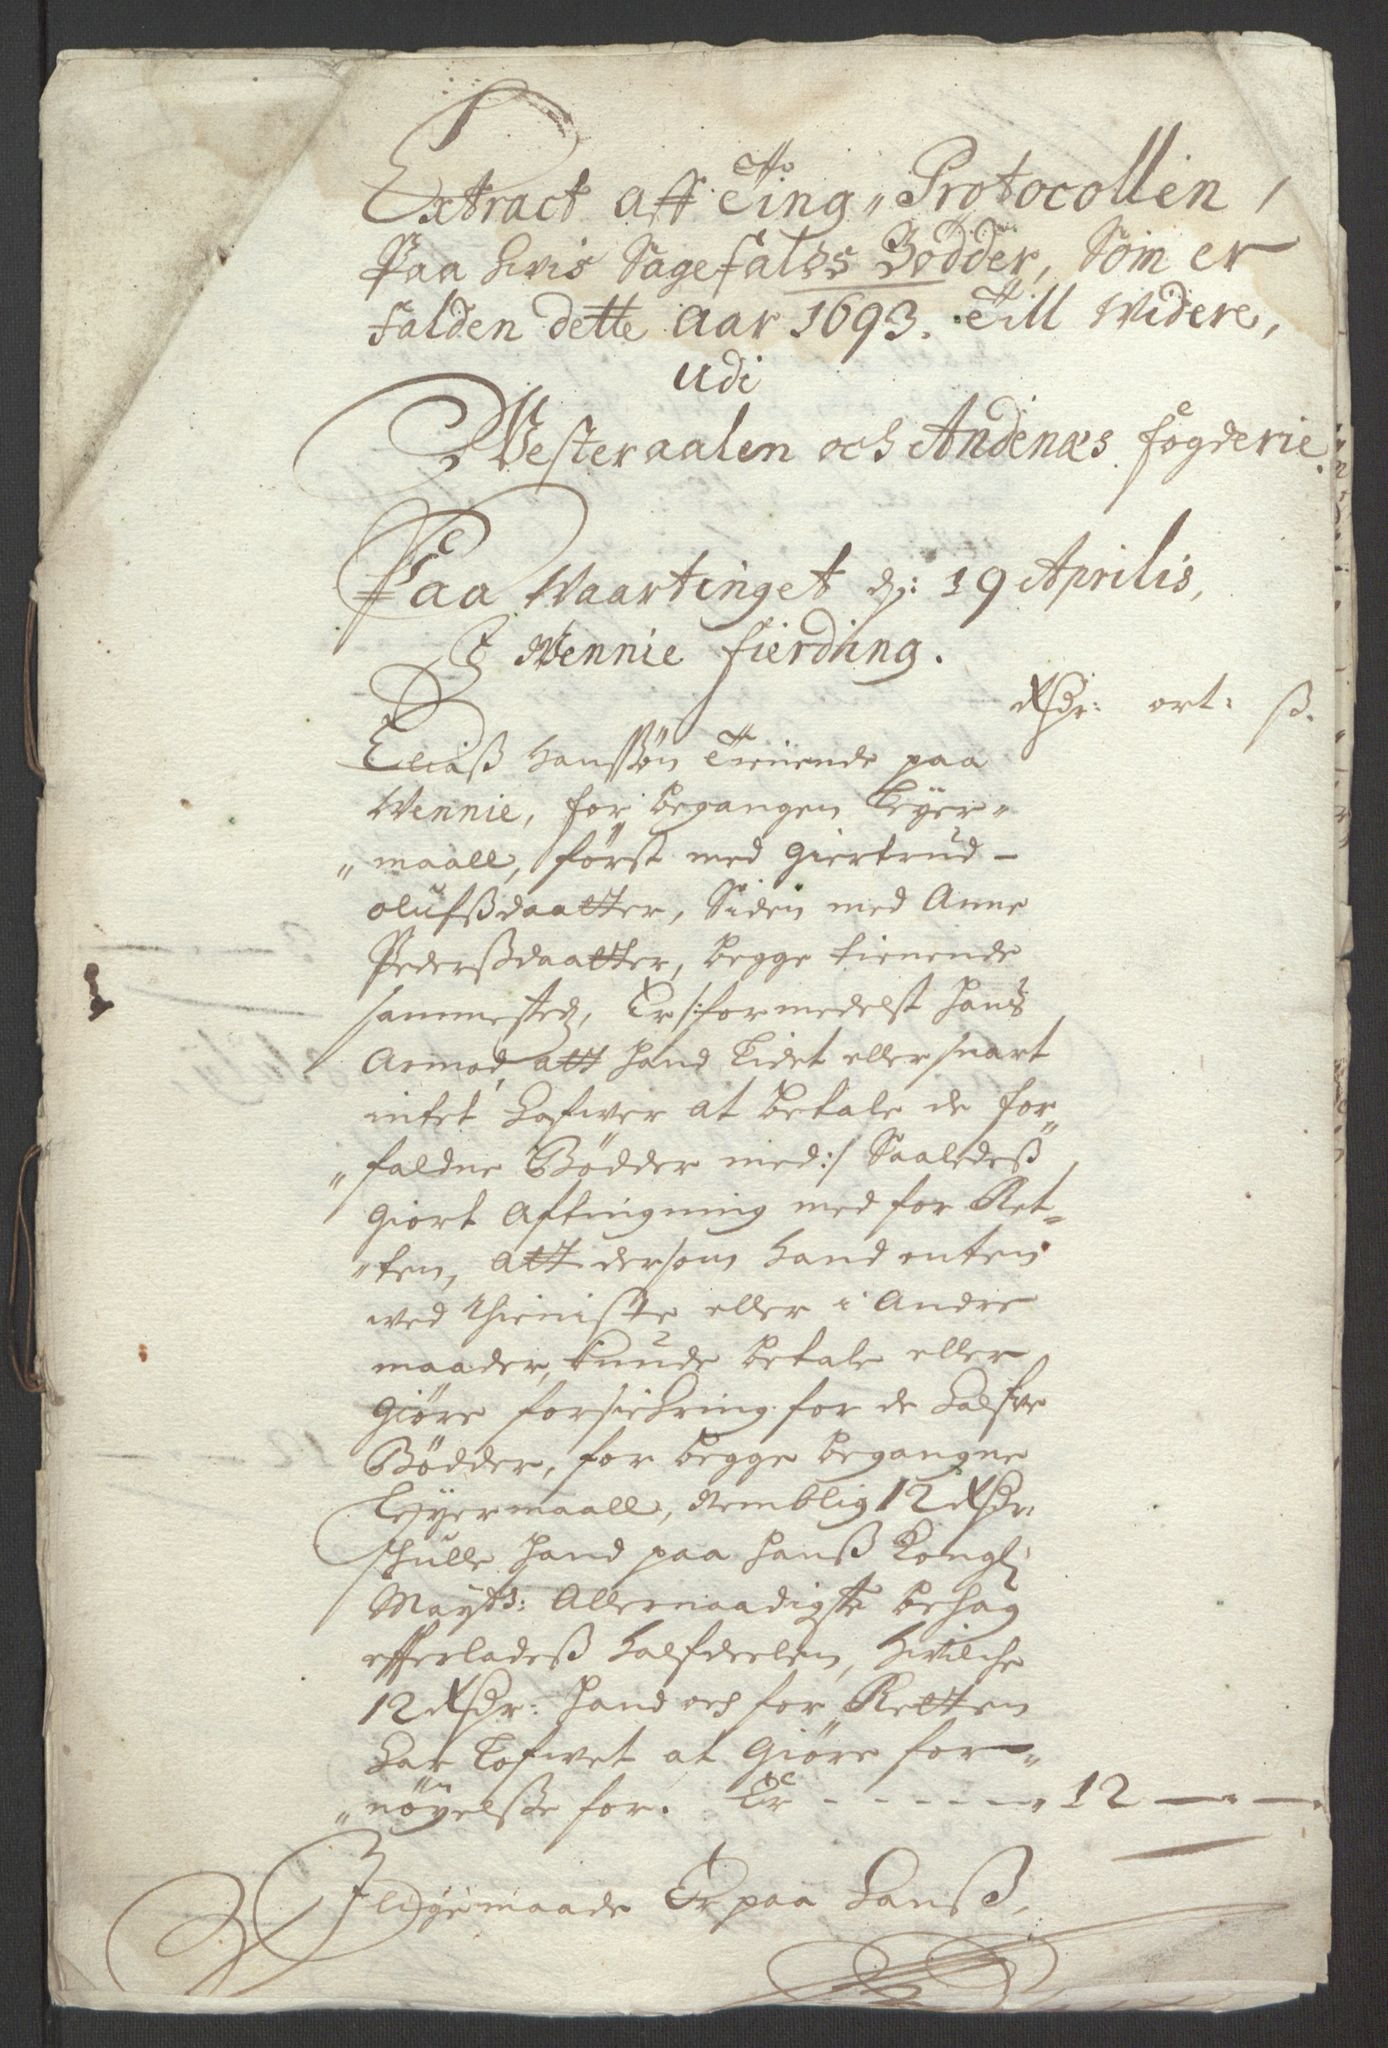 Extract aff Ting„ Protocollen,
Paa hvis Sagefalds Bödder, Som er
falden dette aar 1693. Till Widere,
udi
Westeraalen och Andenæs fogderie.
Paa Waartinget d: 19 Aprilis,
I Wennie fierding.
Rdr: ort: ß.
Eliaß Hanssøn Tienende paa
Wennie, for begangen Leyer„
„maall, først med Giertrud
olufßdaatter, Siden med Anne
Pederßdaatter, begge tienende
sammested, Er /:formedelst hans
Armod, att hand Lidet eller snart
intet hafwer at betale de for„
„faldne Bödder med:/ Saaledeß
Giort Aftingning med for Ret„
„ten, att dersom hand enten
ved thieniste eller i Andre
maader, kunde betale eller
Giøre forsichring for de halfve
Bödder, for begge begangne
Leyermaall, Nemblig 12 Rdr:
schulle hand paa hanß Kongl:
Mayts: Allernaadigste behag
efterladeß halfdeelen, hvilche
12 Rdr: hand och for Retten
har Lofwet at Giøre for„
„nöyelße for. Er - - - - - - „ 12 — „ — .
I ligemaade Er paa Hanß,